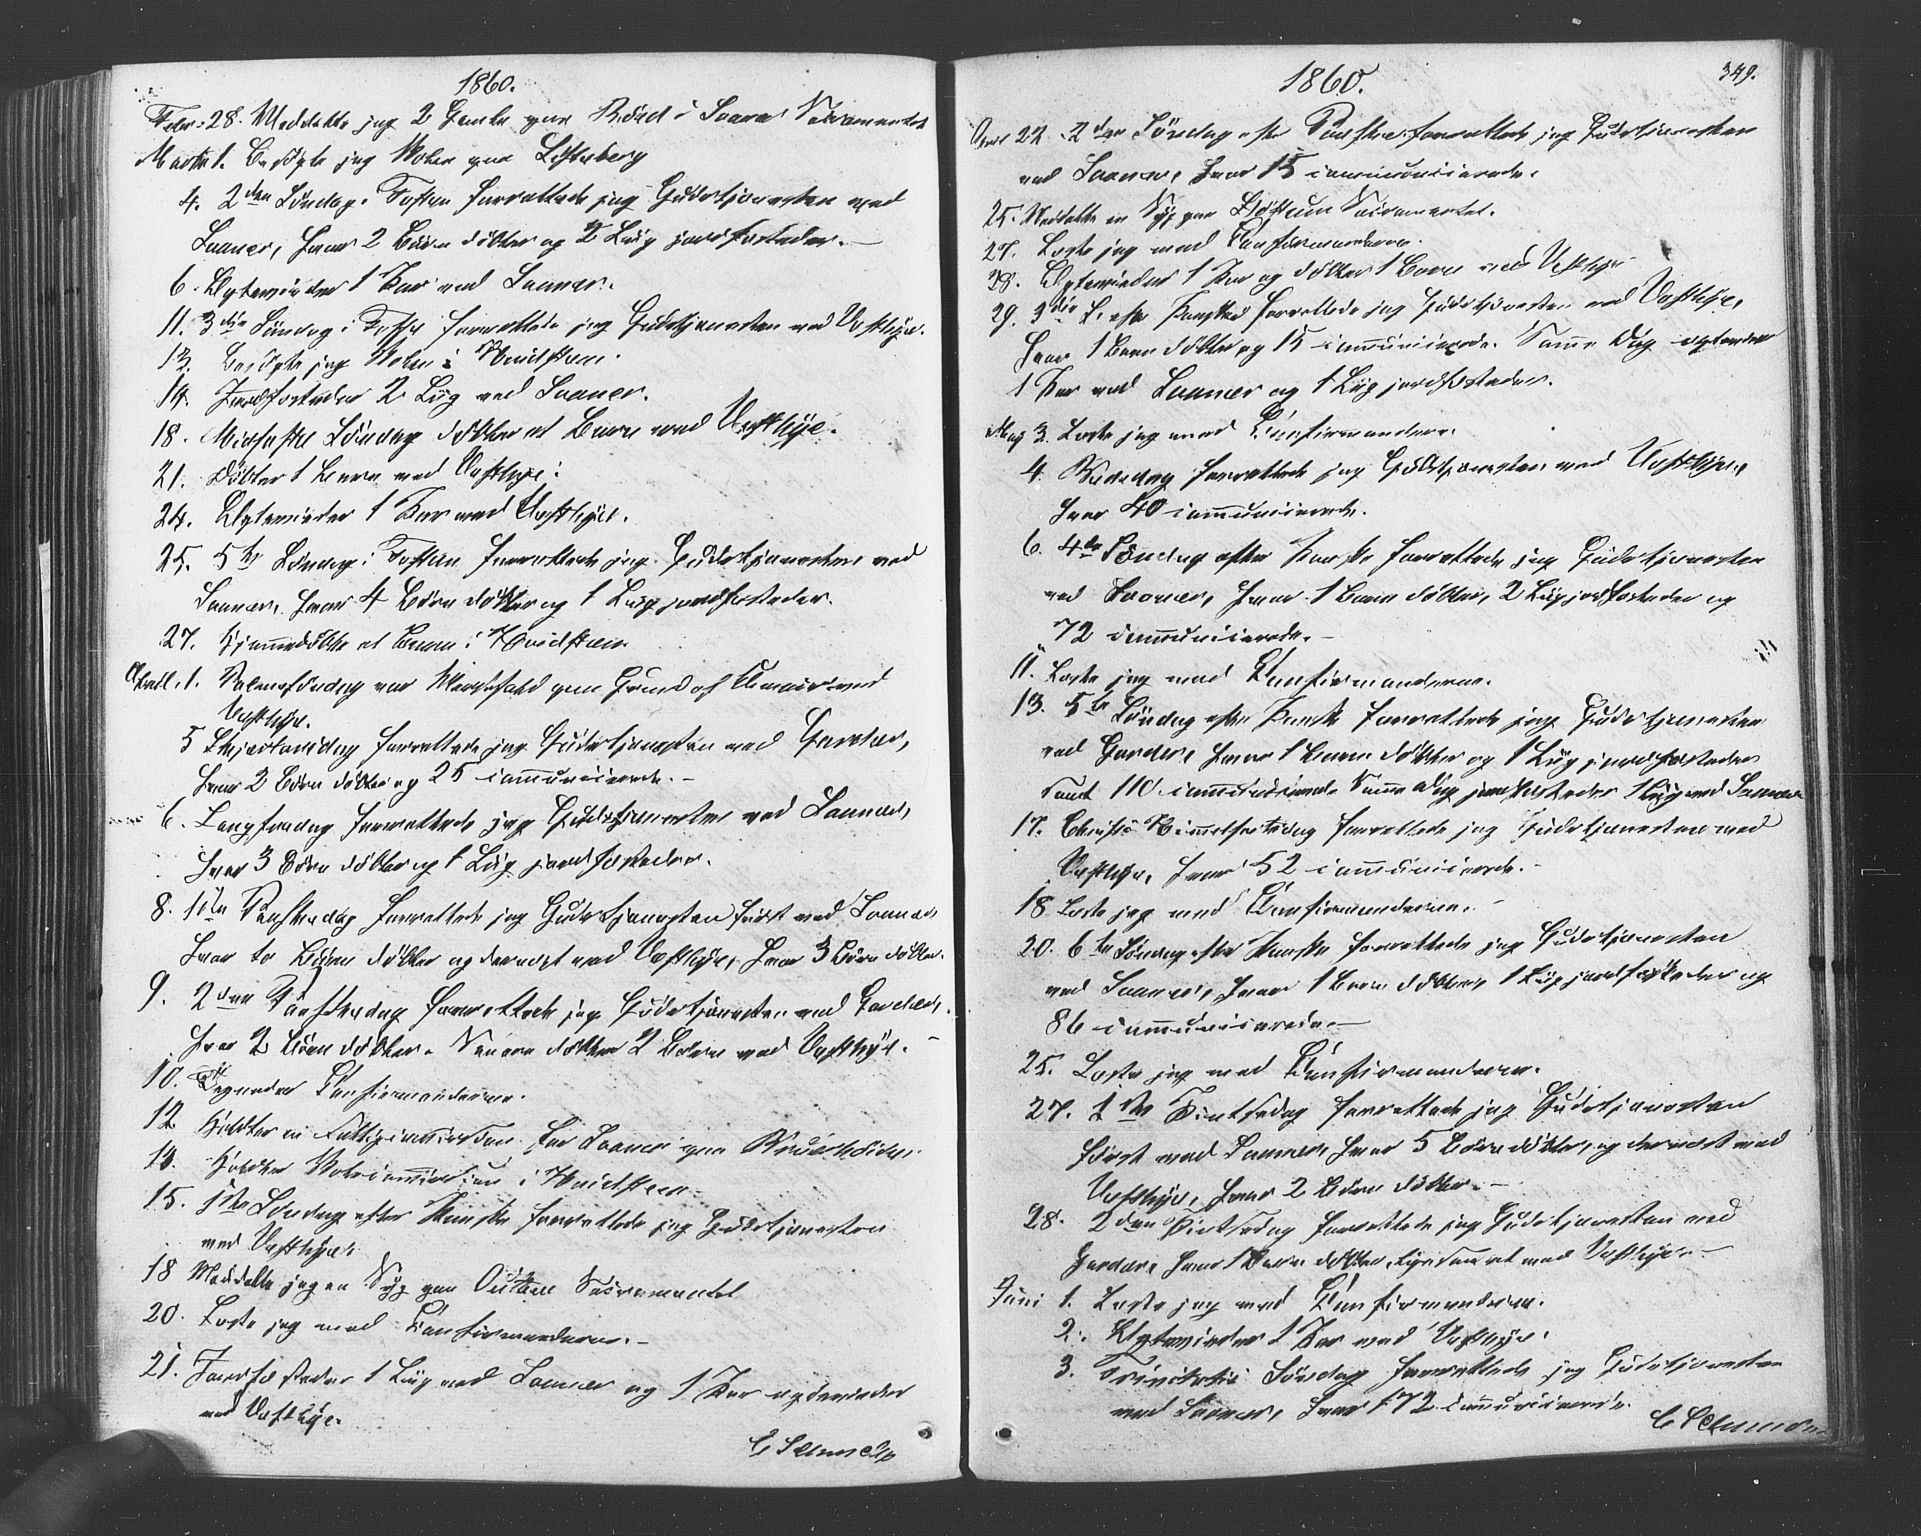 1860.
Febr. 28. Meddelte jeg 2 paa i Saaner Sacramentet
Marts 1. Besøgte jeg Skolen paa
4. 2den Søndag i Fasten forrettede jeg Gudstjenesten ved
Saaner, hvor 2 Børn døbtes og 2 Liig jordfæstedes. —
6. Ægteviedes 1 Par ved Saaner.
11. 3die Søndag i Faste forrettede jeg Gudstjenesten ved Vestbye.
13. Besøgte jeg Skolen i Hvidsten.
14. Jordfæstedes 2 Liig ved Saaner.
18. Midfaste Søndag døbtes et Barn ved Vestbye.
21. Døbtes 1 Barn ved Vestbye.
24. Ægteviedes 1 Par ved Vestbye.
25. 5te Søndag i Fasten forrettede jeg Gudstjenesten ved
Saaner, hvor 4 Børn døbtes og 1 Liig jordfæstedes.
27. Hjemmedøbte et Barn i Hvidsten.
April. 1. Palmesøndag var Messefald paa Grund af ved
Vestbye.
5 Skjærtorsdag forrettede jeg Gudstjenesten ved Garder,
hvor 2 Børn døbtes og 25 communicerede. —
6. Langfredag forrettede jeg Gudstjenesten ved Saaner,
hvor 3 Børn døbtes og 1 Liig jordfæstedes.
8. 1ste Paaskedag forrettede jeg Gudstjenesten først ved Saaner,
hvor to Børn døbtes og dernæst ved Vestbye, hvor 3 Børn døbtes.
9. 2den Paaskedag forrettede jeg Gudstjenesten ved Garder,
hvor 2 Børn døbtes. Senere døbtes 2 Børn ved Vestbye. —
10. Confirmanderne.
12 Holdtes en Fattigcommission for Saaner paa
13. Holdtes Skolecommission i Hvidsten
15. 1ste Søndag efter Paaske forrettede jeg Gudstjenesten
ved Vestbye.
18 Meddelte jeg en Syg paa Sacramentet
20. Læste jeg med Confirmanderne. —
21. Jordfæstedes 1 Liig ved Saaner og 1 Par ægteviedes
ved Vestbye.
1860.
349.
April 22. 2den Søndag efter Paaske forrettede jeg Gudstjenesten
ved Saaner, hvor 15 communicerede.
25. Meddelte en Syg paa Sacramentet.
27. Læste jeg med Confirmanderne.
28. Ægteviedes 1 Par og døbtes 1 Barn ved Vestbye
29. 3die S. efter Paaske forrettede jeg Gudstjenesten ved Vestbye,
hvor 1 Barn døbtes og 15 communicerede. Samme Dag ægteviedes
1 Par ved Saaner og 1 Liig jordfæstedes.
May 3. Læste jeg med Confirmanderne
4. Bededag forrettede jeg Gudstjenesten ved Vestbye,
hvor 40 communicerede.
6. 4de Søndag efter Paaske forrettede jeg Gudstjenesten
ved Saaner, hvor 1 Barn døbtes, 2 Liig jordfæstedes og
72 communicerede. —
11. Læste jeg med Confirmanderne.
13. 5te Søndag efter Paaske forrettede jeg Gudstjenesten
ved Garder, hvor 1 Barn døbtes og 1 Liig jordfæstedes
samt 110 communicerede. Samme Dag jordfæstedes 1 Liig ved Saaner
17. Christi Himmelfartsdag forrettede jeg Gudstjenesten ved
Vestbye, hvor 52 communicerede. —
18 Læste jeg med Confirmanderne. —
20. 6te Søndag efter Paaske forrettede jeg Gudstjenesten
ved Saaner, hvor 1 Barn døbtes, 1 Liig jordfæstedes og
86 communicerede. —
25. Læste jeg med Confirmanderne.
27. 1ste Pintsedag forrettede jeg Gudstjenesten
først ved Saaner, hvor 5 Børn døbtes, og dernæst ved
Vestbye, hvor 2 Børn døbtes. —
28. 2den Pintsedag forrettede jeg Gudstjenesten ved
Garder, hvor 1 Barn døbtes, ligesaa et ved Vestbye. —
Juni 1. Læste jeg med Confirmanderne.
2. Ægteviedes 1 Par ved Vestbye.
3. Trinitatis Søndag forrettede jeg Gudstjenesten
ved Saaner, hvor 172 communicerede.